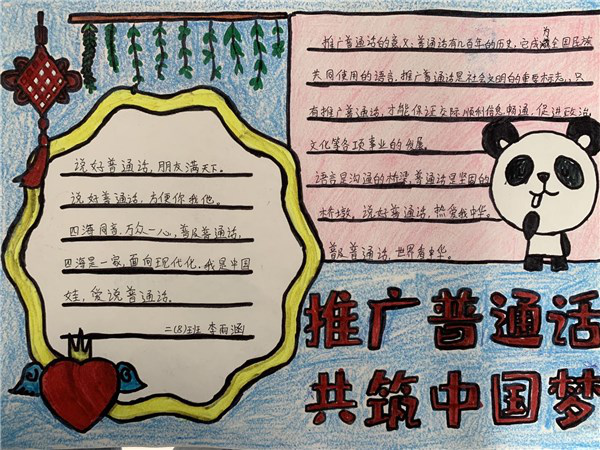 说好普通话，朋友满天下。
说好普通话，方便你我他。
四海同音，万众一心，普及普通话，
四海是一家，面向现代化，我是中国
娃，爱说普通话。
二(8)班 李雨涵
推广普通话的意义：普通话有几百年的历史，它成为全国民族
共同使用的语言，推广普通话是社会文明的重要标志，只
有推广普通话，才能保证交际顺利信息畅通，促进政治
文化等各项事业的发展。
语言是沟通的桥梁，普通话是坚固的
桥墩，说好普通话，热爱我中华。
普及普通话，世界看中华。
推广普通话
共筑中国梦